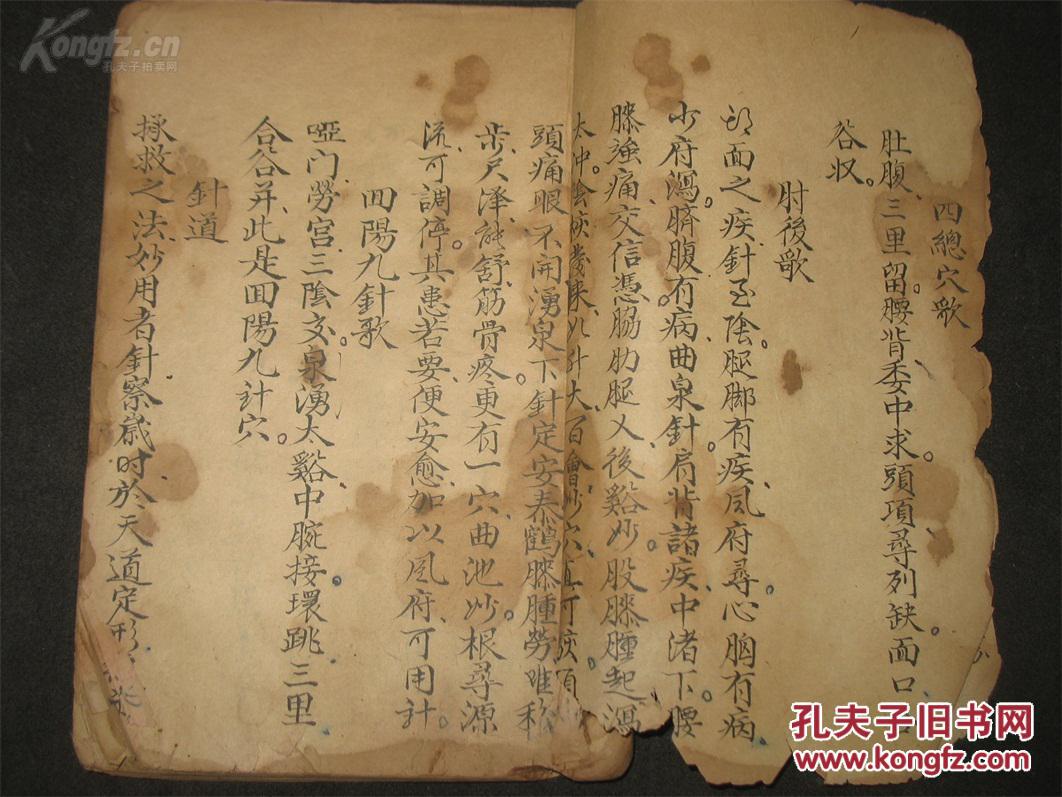 四總穴歌
肚腹三里留。腰背委中求。頭項尋列缺。面口
谷収。
肘後歌
面之疾針至陰。腿脚有疾風府尋。心胸有病
少府瀉。臍腹有病曲泉針。肩背諸疾中渚下。腰
膝強痛交信憑。脇肋腿乂後谿妙。股膝腫起瀉
太冲。
百會妙穴真可
頭痛眼不開湧泉下針定安泰。鶴膝腫勞
步。尺澤能舒筋骨疼。更有一穴曲池妙。根尋源
流可調停。其患若要便安愈。加以風府可用針。
回陽九針歌
啞门勞宫三陰交。泉湧太谿中脘接。環跳三里
合谷并。此是回陽九針穴。
針道
拯救之法妙用者針察歲時於天道定形
Kongfz.cn
孔夫子拍卖网
孔夫子旧书网
www.kongfz.com